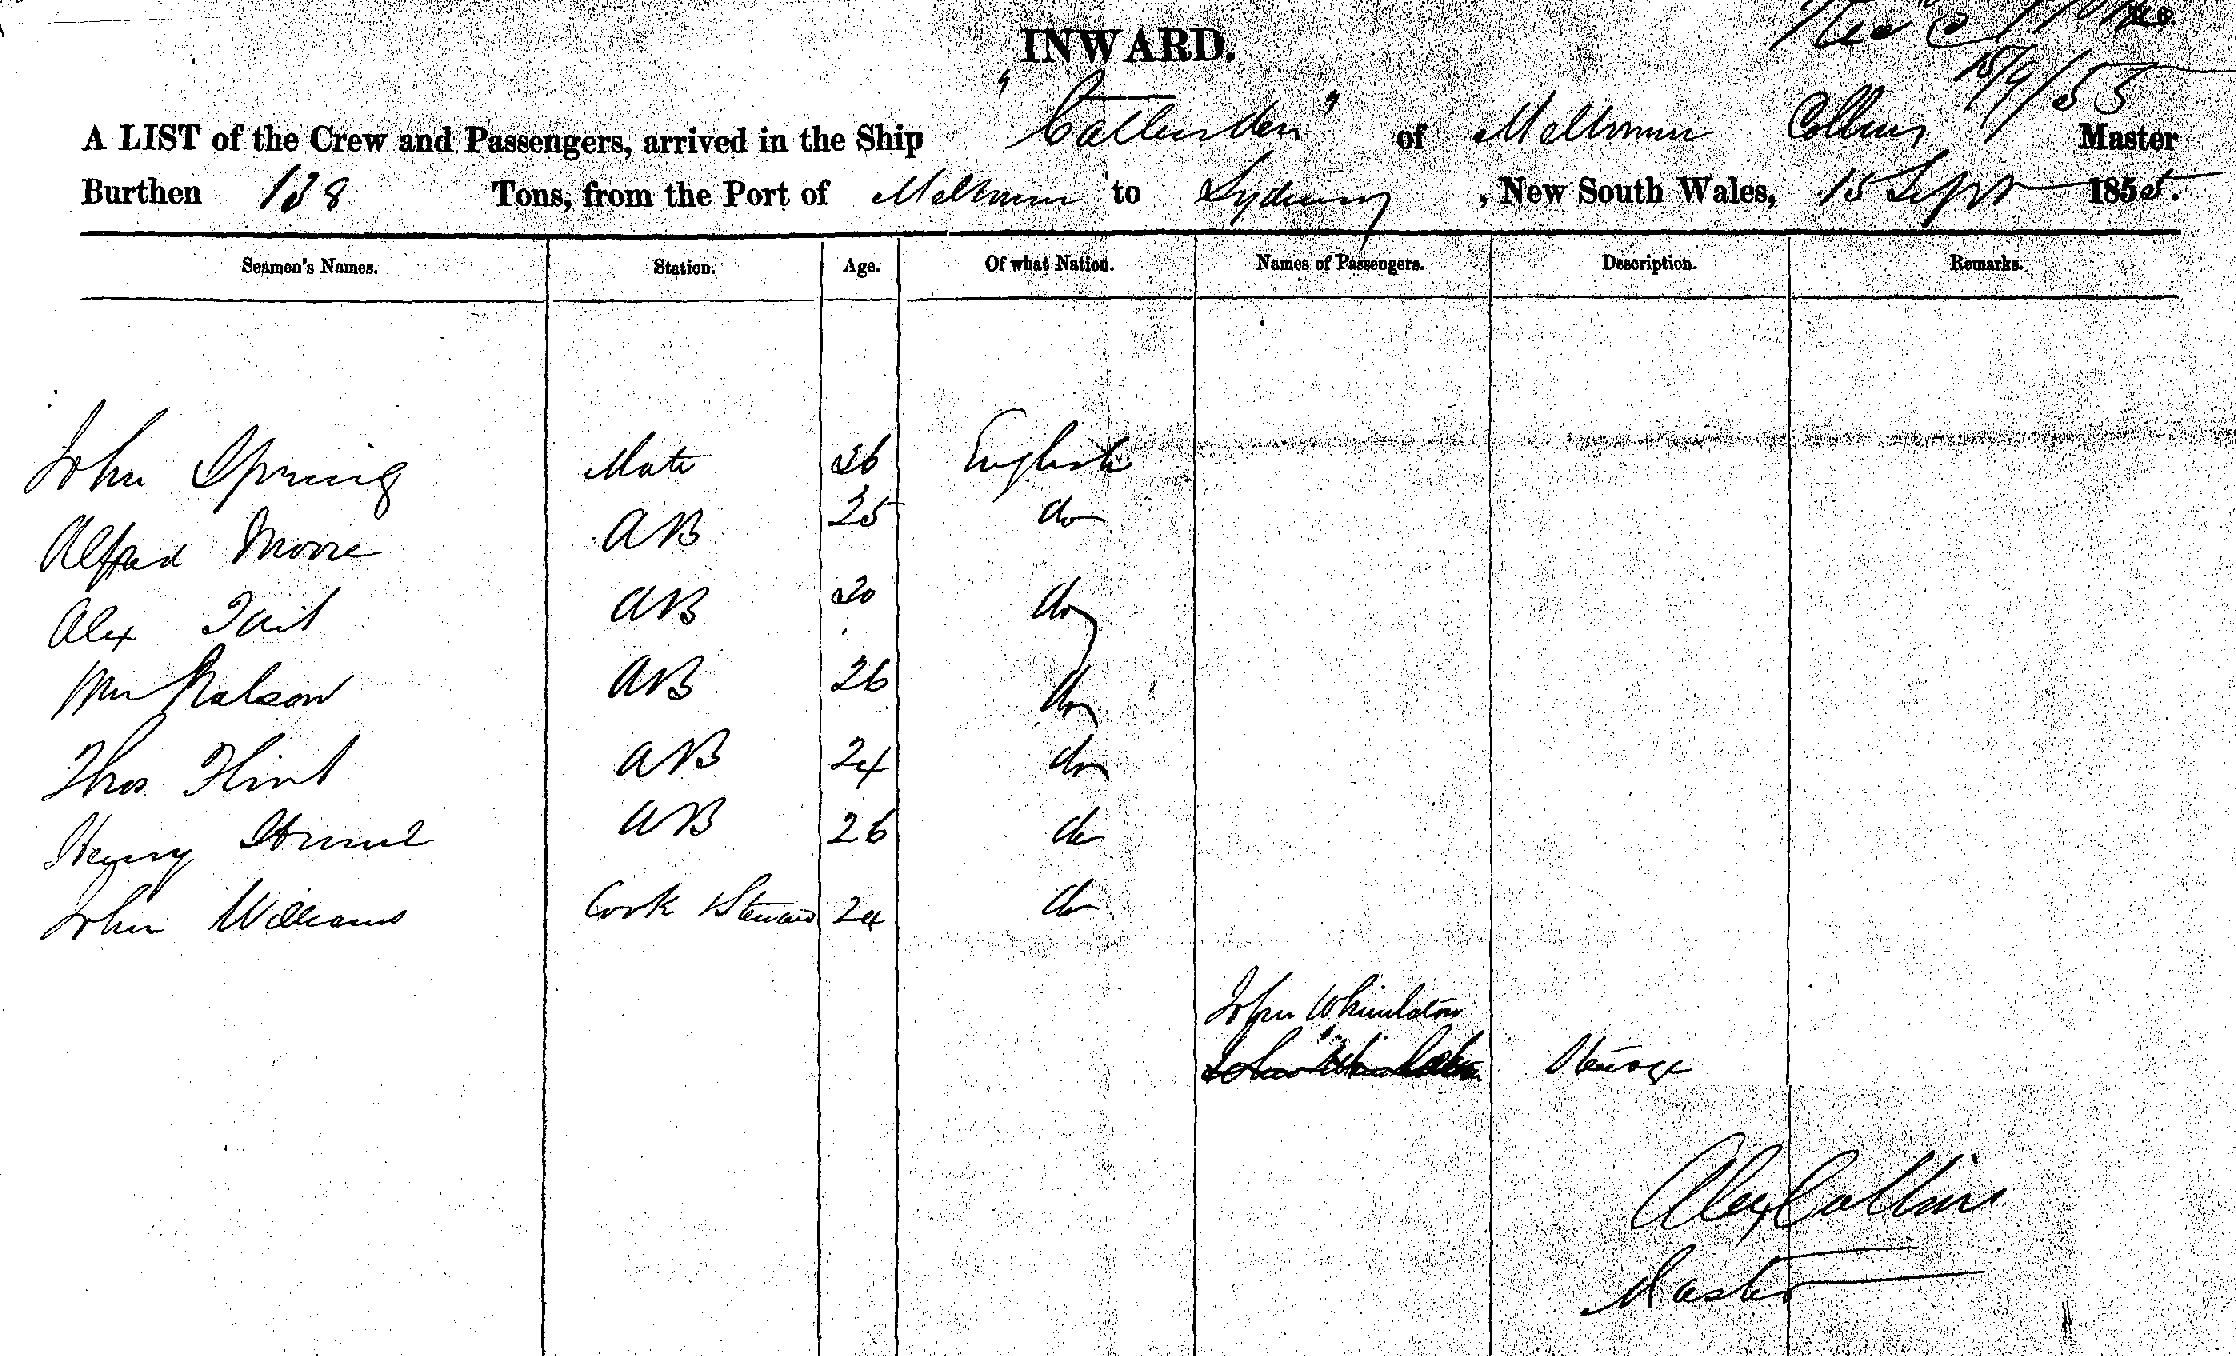 INWARD.
15/9/55
A LIST of the Crew and Passengers, arrived in the Ship " " of Melbourne Collins Master
Burthen 138 Tons, from the Port of Melbourne to Sydney, New South Wales, 15 Sept 1855.
Seamen's Names. Station. Age. Of what Nation. Names of Passengers. Description. Remarks.
John Spring Mate 26 English
Alfred Moore AB 25 do
Alex Tait AB 20 do
Wm AB 26 do
Thos Flint AB 24 do
Henry AB 26 do
John Williams Cook & Steward 24 do
John
Steerage
Alex Collins
Master